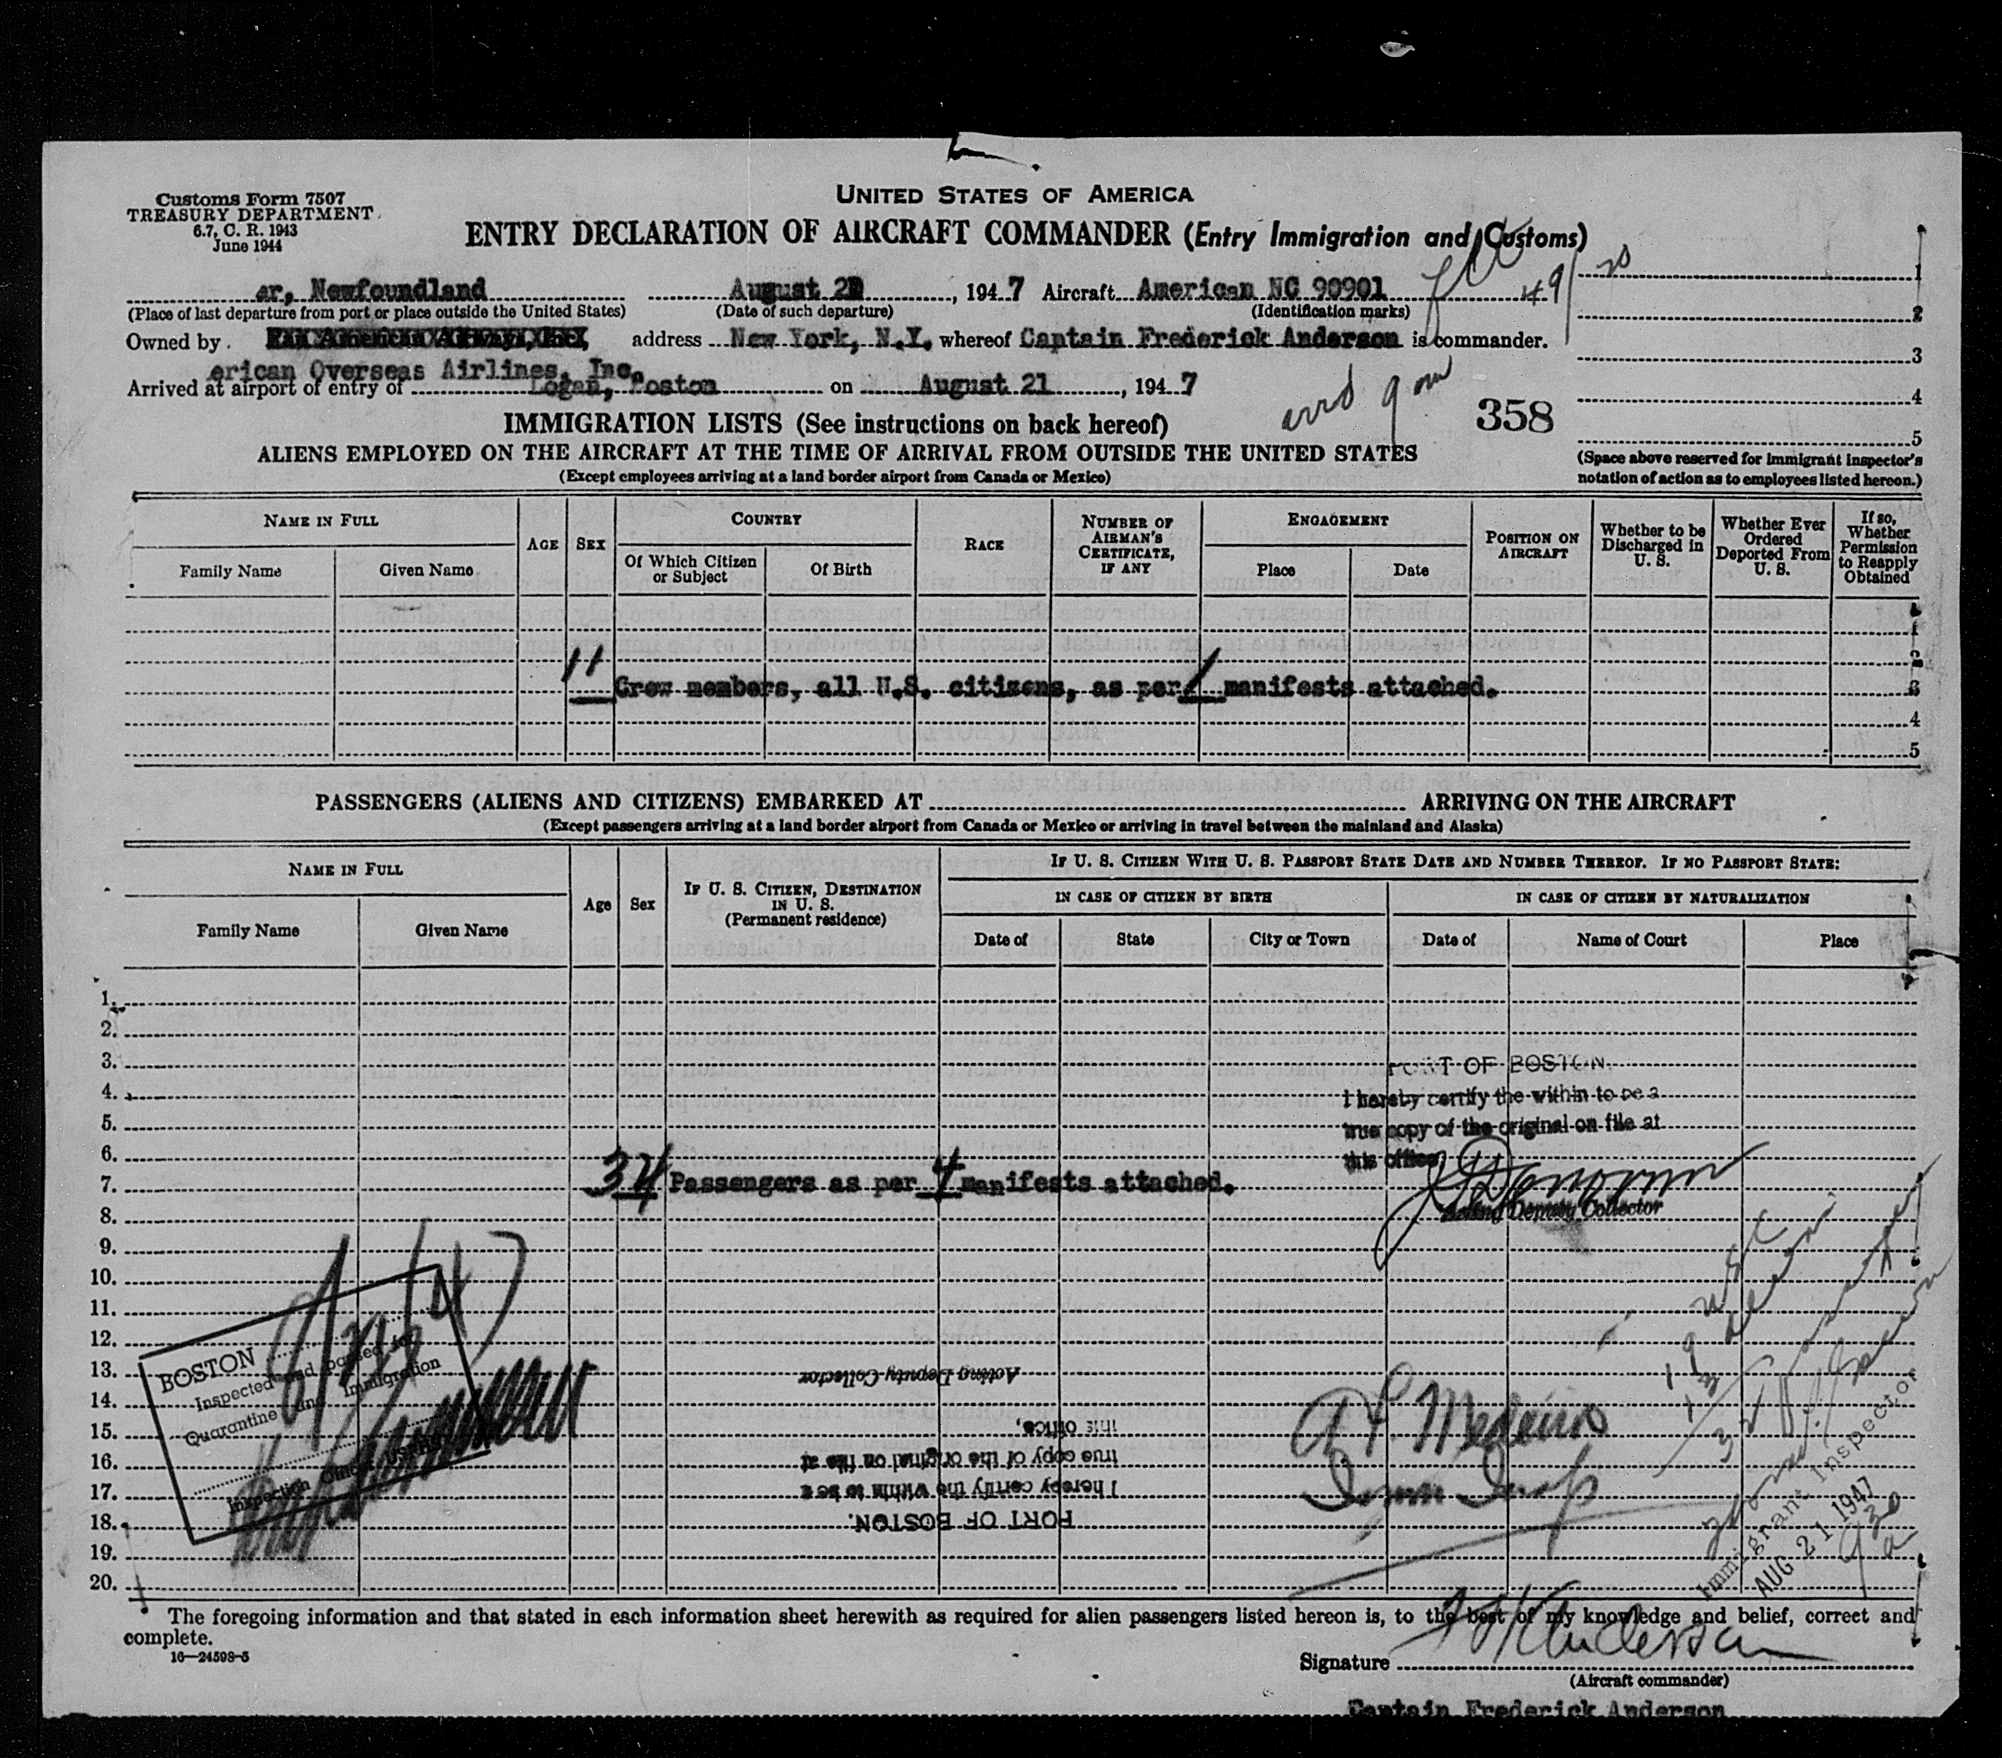 UNITED STATES OF AMERICA
Customs Form 7507
TREASURY DEPARTMENT
6.7, C. R. 1943
June 1944
ENTRY DECLARATION OF AIRCRAFT COMMANDER (Entry Immigration and Customs)
er, Newfoundland August 2 , 194 7 Aircraft American NC 90901
(Place of last departure from port or place outside the United States) (Date of such departure) (Identification marks)
Owned by Pan American Airways, Inc., address New York, N.Y. whereof Captain Frederick Anderson is commander.
erican Overseas Airlines, Inc.
Arrived at airport of entry of Logan, Boston on August 21, 194 7
arrd 9
358
1
2
3
4
5
(Space above reserved for immigrant inspector's
notation of action as to employees listed hereon.)
IMMIGRATION LISTS (See instructions on back hereof)
ALIENS EMPLOYED ON THE AIRCRAFT AT THE TIME OF ARRIVAL FROM OUTSIDE THE UNITED STATES
(Except employees arriving at a land border airport from Canada or Mexico)
NAME IN FULL
Family Name
Given Name
AGE
SEX
COUNTRY
Of Which Citizen or Subject
Of Birth
RACE
NUMBER OF AIRMAN'S CERTIFICATE, IF ANY
ENGAGEMENT
Place
Date
POSITION ON AIRCRAFT
Whether to be Discharged in U. S.
Whether Ever Ordered Deported From U. S.
If so, Whether Permission to Reapply Obtained
1
2
11 Crew members, all U.S. citizens, as per 1 manifests attached. 3
4
5
PASSENGERS (ALIENS AND CITIZENS) EMBARKED AT ARRIVING ON THE AIRCRAFT
(Except passengers arriving at a land border airport from Canada or Mexico or arriving in travel between the mainland and Alaska)
NAME IN FULL
Family Name
Given Name
Age
Sex
IF U. S. CITIZEN, DESTINATION IN U. S.
(Permanent residence)
IF U. S. CITIZEN WITH U. S. PASSPORT STATE DATE AND NUMBER THEREOF. IF NO PASSPORT STATE:
IN CASE OF CITIZEN BY BIRTH
IN CASE OF CITIZEN BY NATURALIZATION
Date of
State
City or Town
Date of
Name of Court
Place
1.
2.
3.
4.
5.
6.
7. 34 Passengers as per 4 manifests attached.
8.
9.
10.
11.
12.
13.
14.
15.
16.
17.
18.
19.
20.
PORT OF BOSTON.
I hereby certify the within to be a
true copy of the original on file at
this office,
Acting Deputy Collector
BOSTON
Inspected and passed for
Quarantine and Immigration
Inspection
PORT OF BOSTON.
I hereby certify the within to be a
true copy of the original on file at
this office,
Acting Deputy Collector
Immigrant Inspector
AUG 21 1947
The foregoing information and that stated in each information sheet herewith as required for alien passengers listed hereon is, to the best of my knowledge and belief, correct and
complete.
16—24598-5
Signature Anderson
(Aircraft commander)
Captain Frederick Anderson